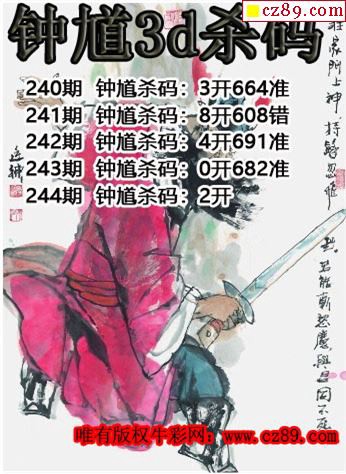 cz89.com
钟馗3d杀码
240期 钟馗杀码：3开664准
241期 钟馗杀码：8开608错
242期 钟馗杀码：4开691准
243期 钟馗杀码：0开682准
244期 钟馗杀码：2开
唯有版权牛彩网：www.cz89.com